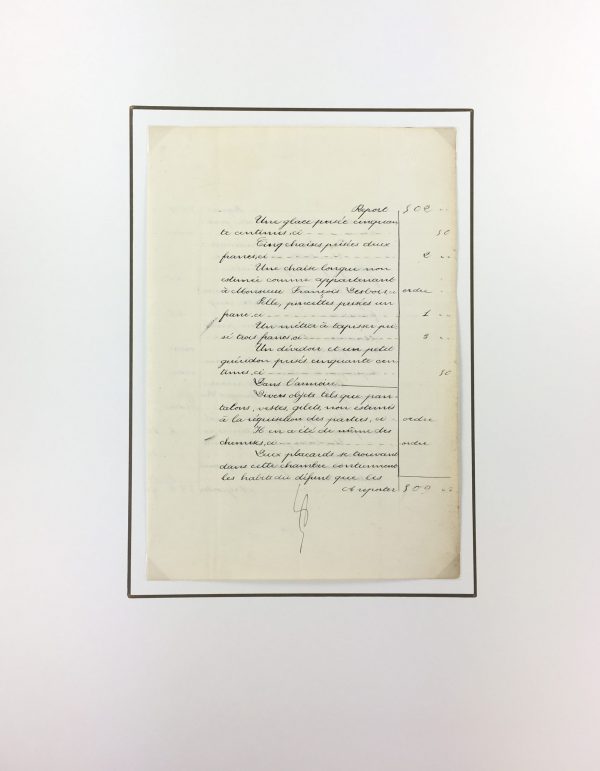 Report 502 " "
Une glace prisée cinquan
te centimes, ci 50
Cinq chaises prisées deux
francs, ci 2 " "
Une chaise longue non
estimée comme appartenant
à Monsieur François ordre
Pelle, pincettes prisées un
franc, ci 1 " "
Un métier à tapisser pri
sé trois francs, ci 3 " "
Un dévidoir et un petit
guéridon prisés cinquante cen
times, ci 50
Dans l'armoire
Divers objets tels que pan-
talons, vestes, gilets, non estimés
à la réquisition des parties, ci ordre
Il en a été de même des
chemises, ci ordre
Deux placards se trouvant
dans cette chambre contiennent
les habits du défunt que les
A reporter 509 " "